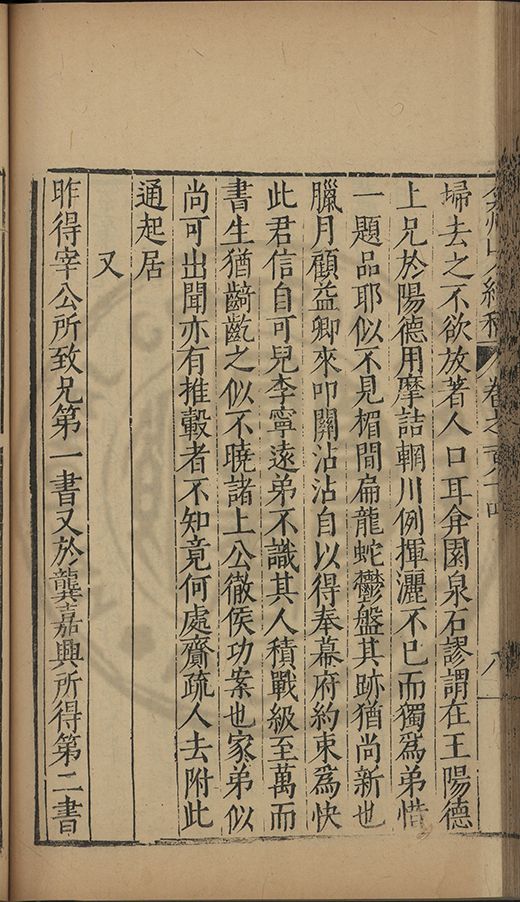 弇州山人續稿 卷之百 八
埽去之不欲放著人口耳弇園泉石謬謂在王陽德
上兄於陽德用摩詰輞川例揮灑不已而獨爲弟惜
一題品耶似不見楣間扁龍蛇鬱盤其跡猶尚新也
臘月顧益卿來叩關沾沾自以得奉幕府約束爲快
此君信自可兒李寧遠弟不識其人積戰級至萬而
書生猶齮齕之似不曉諸上公徹侯功案也家弟似
尚可出聞亦有推轂者不知竟何處齎疏人去附此
通起居
又
昨得宰公所致兄第一書又於龔嘉興所得第二書